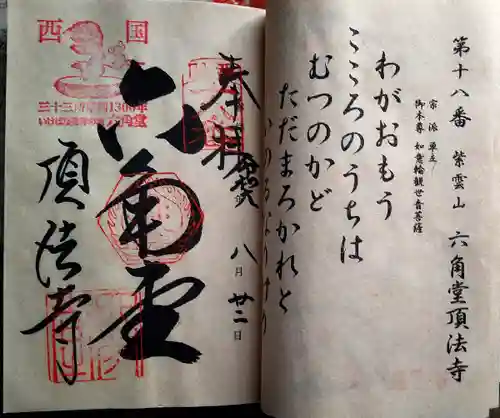 第十八番 紫雲山 六角堂頂法寺
宗派 単立
御本尊 如意輪観世音菩薩
わがおもう
こころのうちは
むつのかど
ただまろかれと
奉拝
八月廿二日
六角堂
頂法寺
西国
三十三所